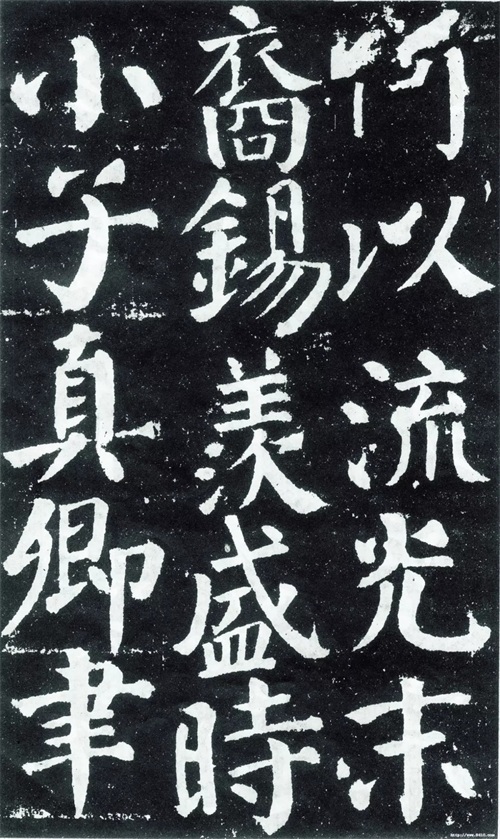 何以流光末
裔錫羨盛時
小子真卿聿